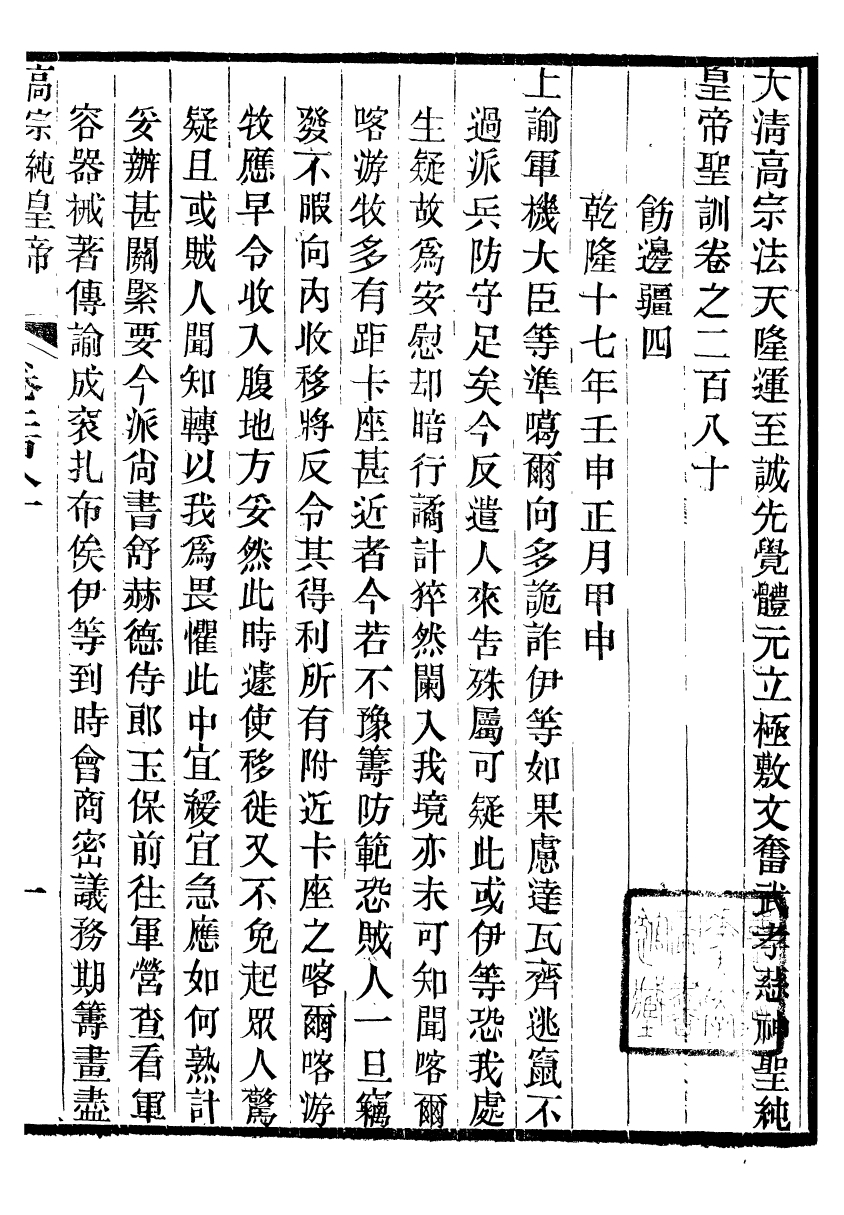 大清高宗法天隆運至誠先覺體元立極敷文奮武孝慈神聖純
皇帝聖訓卷之二百八十
飭邊疆四
乾隆十七年壬申正月甲申
上諭軍機大臣等準噶爾向多詭詐伊等如果慮達瓦齊逃竄不
過派兵防守足矣今反遣人來告殊屬可疑此或伊等恐我處
生疑故爲安慰却暗行譎計猝然闌入我境亦未可知聞喀爾
喀游牧多有距卡座甚近者今若不豫籌防範恐賊人一旦竊
發不暇向內收移將反令其得利所有附近卡座之喀爾喀游
牧應早令收入腹地方妥然此時遽使移徙又不免起眾人驚
疑且或賊人聞知轉以我爲畏懼此中宜緩宜急應如何熟計
妥辦甚關緊要今派尙書舒赫德侍郎玉保前往軍營查看軍
容器械著傳諭成袞扎布俟伊等到時會商密議務期籌畫盡
高宗純皇帝
一